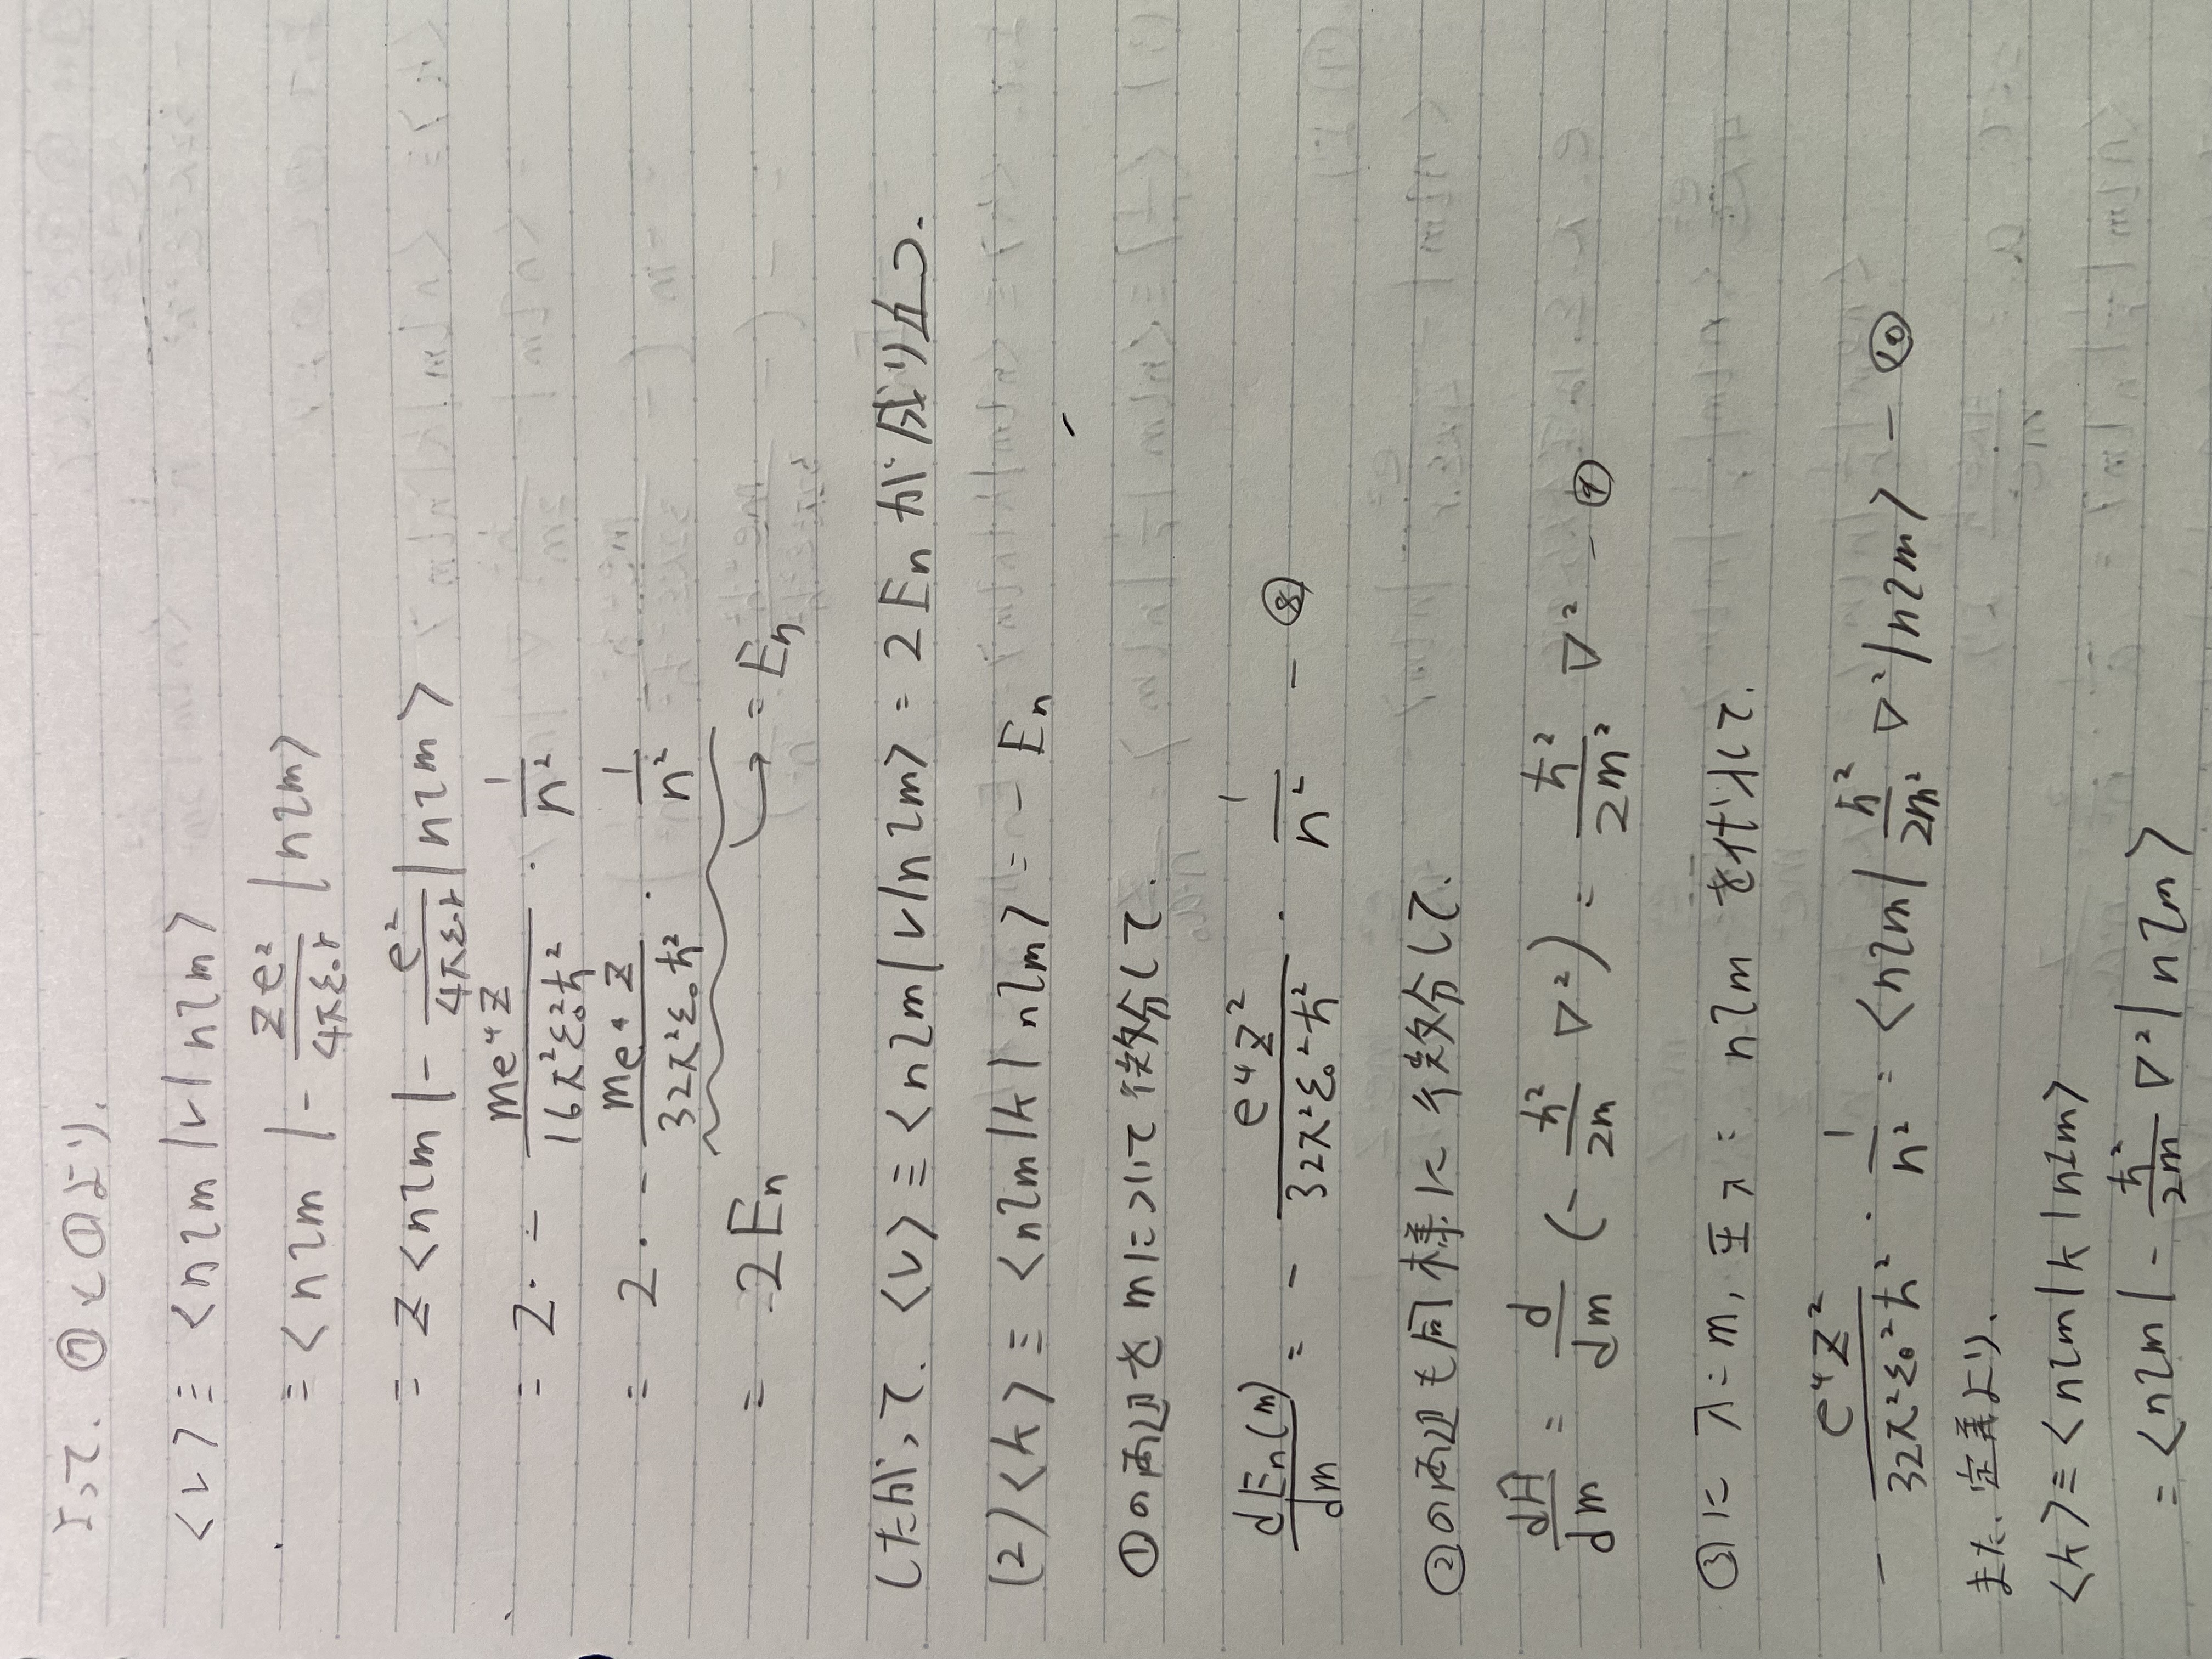 よって、⑦と①より、
<V> ≡ <nlm|V|nlm>
≡ <nlm|-\frac{Ze^2}{4πε_0r}|nlm>
= Z<nlm|-\frac{e^2}{4πε_0r}|nlm>
= Z・-\frac{me^4Z}{16π^2ε_0^2ħ^2}・\frac{1}{n^2}
= 2・-\frac{me^4Z}{32π^2ε_0ħ^2}・\frac{1}{n^2}
= 2E_n → = E_n
したがって、<V> ≡ <nlm|V|nlm> = 2E_n が成り立つ.
(2) <K> ≡ <nlm|K|nlm> = -E_n
①の両辺をmについて微分して、
\frac{dE_n(m)}{dm} = -\frac{e^4Z^2}{32π^2ε_0^2ħ^2}・\frac{1}{n^2} - ⑧
②の両辺も同様に微分して、
\frac{dĤ}{dm} = \frac{d}{dm}(-\frac{ħ^2}{2m}∇^2) = \frac{ħ^2}{2m^2}∇^2 - ⑨
③に λ=m, Ψλ= nlm を代入して、
-\frac{e^4Z^2}{32π^2ε_0^2ħ^2}・\frac{1}{n^2} = <nlm|\frac{ħ^2}{2m^2}∇^2|nlm> - ⑩
また、定義より、
<K> ≡ <nlm|K|nlm>
= <nlm|-\frac{ħ^2}{2m}∇^2|nlm>